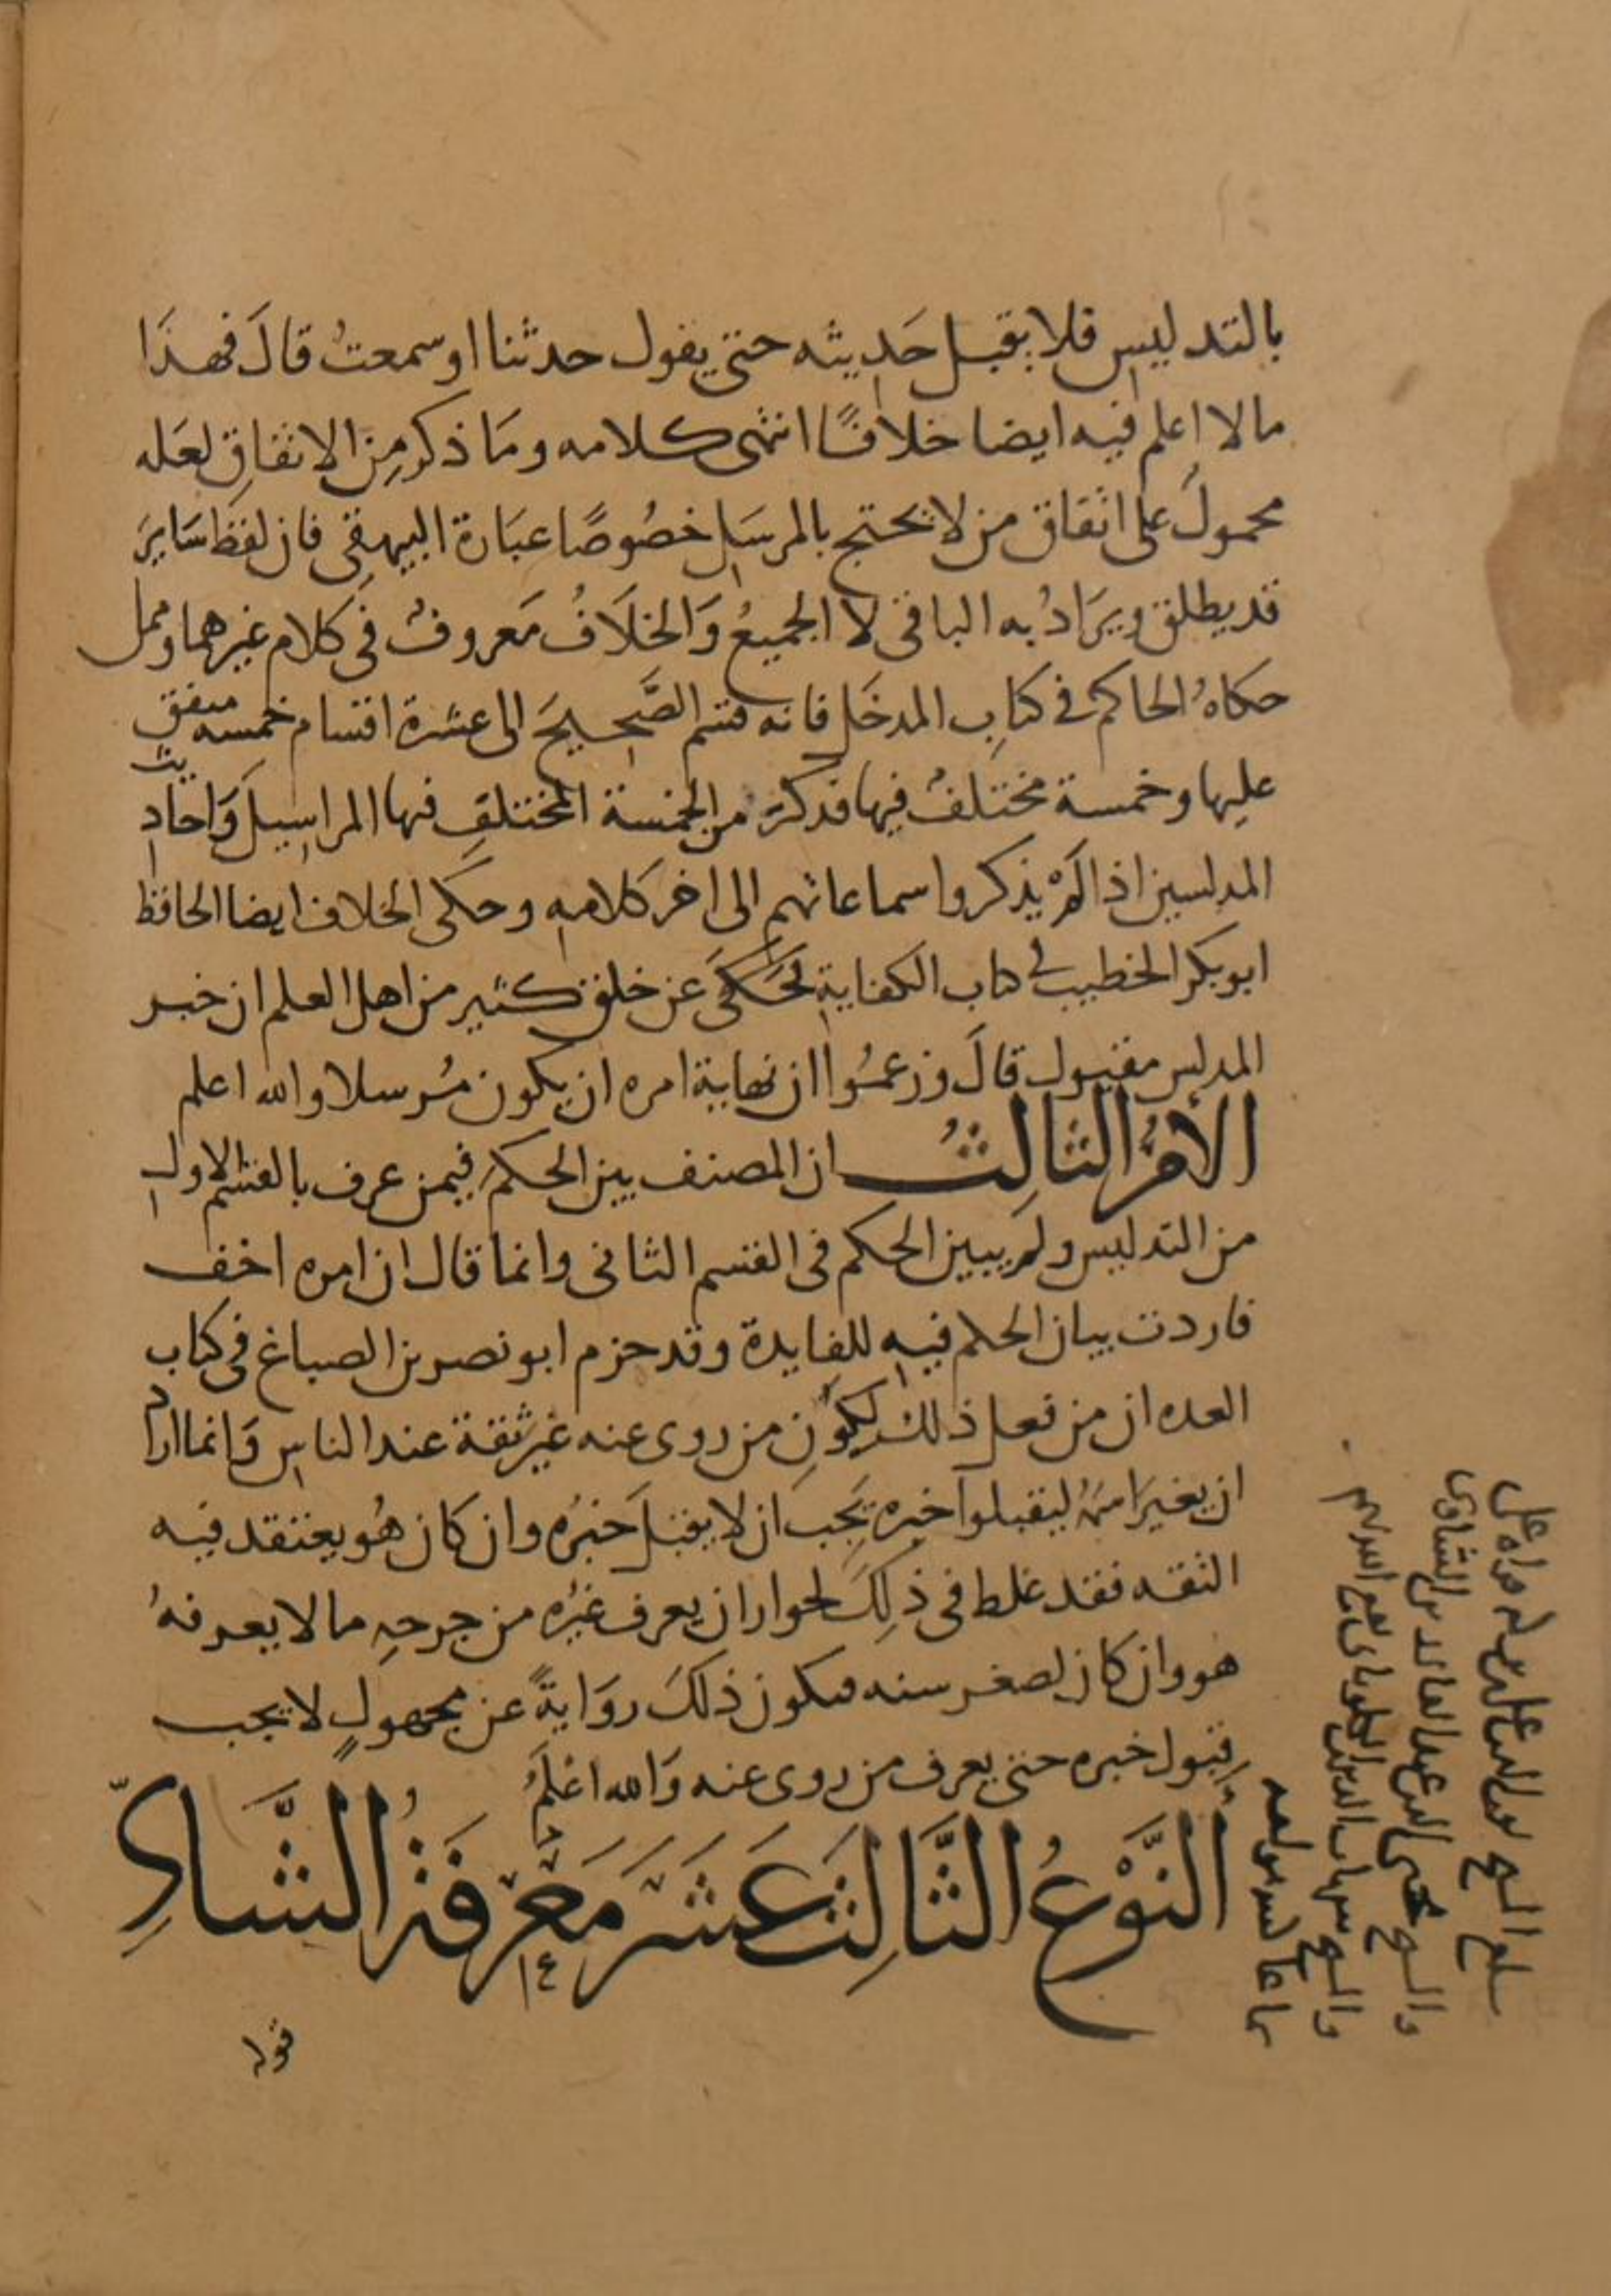 بالتدليس فلا يقبل حَديثه حتى يقول حدثنا او سمعتُ قالَ فهذَا
مالا اعلم فيه ايضا خلافًا انتهى كلامه ومَا ذكر مِن الاتفاقِ لعَله
محمولَ على اتفاق من لا يحتج بالمرسَل خصُوصًا عبَارة البيهقى فان لفظ سَايرَ
قد يطلق ويرَادُ به الباقى لا الجميعُ وَالخلَافُ مَعروفُ فى كلام غيرهما وممن
حكاهُ الحاكم فى كتابِ المدخَل فانه قسم الصَّحيحَ الى عشرة اقسام خمسه متفق
عليها وخمسة مختلفُ فيها فذكرَ من الخمسة المختلفِ فيها المراسيل وَاحاديث
المدلسين اذا لَمْ يذكروا سماعاتهم الى اخر كلامهِ وحكَى الخلاف ايضا الحافظ
ابو بكر الخطيب فى كتاب الكفايةِ فحَكَى عَن خلق كثير من اهل العلم ان خبر
المدلس مقبول قالَ وزعمُوا ان نهاية امره ان يكون مُرسلا والله اعلم
الأمرُ الثالثُ ان المصنف بين الحكمَ فيمن عرف بالقسم الاول
من التدليس ولم يبين الحكم فى القسم الثانى وانما قال ان امره اخف
فاردت بيان الحكم فيهِ للفايدة وقد جزم ابو نصر بن الصباغ فى كتاب
العده ان من فعل ذلك لكَونِ من روى عنه غيرَ ثقة عند الناسِ وَانما اراد
ان يغيرَ اسمَهُ ليقبلوا خبره يَجب ان لا يقبلَ خبرُه وان كان هُو يعتقد فيه
الثقه فقد غلط فى ذلِكَ لجواز ان يعرف غيرُه من جرحهِ ما لا يعرفهُ
هو وان كان لصغر سنه فيكون ذلكَ روَايةً عن مجهولٍ لا يجب
قبول خبره حتى يعرف من روى عنه وَالله اعْلَمُ
النَّوْعُ الثَّالِثَ عَشَرَ مَعْرِفَةُ الشَّاذِّ
١٤
قوله
والشيخ الشاوى
والشيخ شهاب الدين